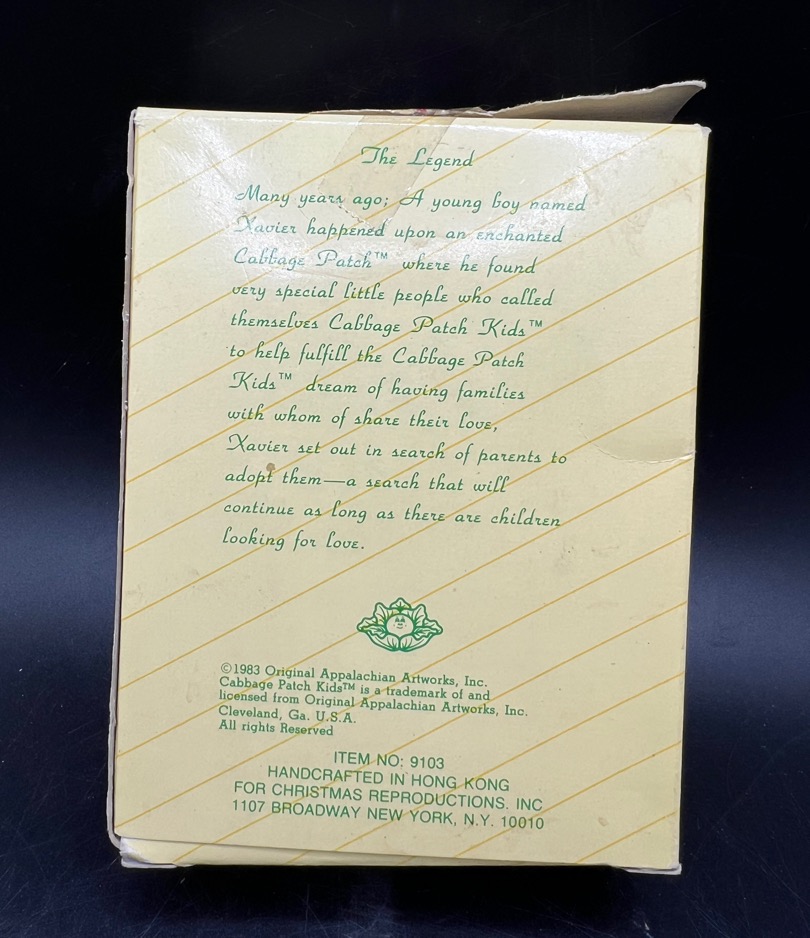 The Legend
Many years ago; A young boy named
Xavier happened upon an enchanted
Cabbage Patch™ where he found
very special little people who called
themselves Cabbage Patch Kids™
to help fulfill the Cabbage Patch
Kids™ dream of having families
with whom of share their love,
Xavier set out in search of parents to
adopt them—a search that will
continue as long as there are children
looking for love.
©1983 Original Appalachian Artworks, Inc.
Cabbage Patch Kids™ is a trademark of and
licensed from Original Appalachian Artworks, Inc.
Cleveland, Ga. U.S.A.
All rights Reserved
ITEM NO: 9103
HANDCRAFTED IN HONG KONG
FOR CHRISTMAS REPRODUCTIONS. INC
1107 BROADWAY NEW YORK, N.Y. 10010